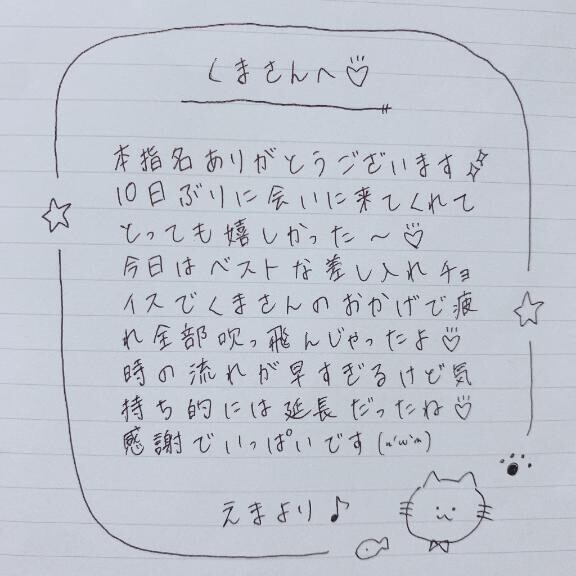 くまさんへ♡
本指名ありがとうございます✨
10日ぶりに会いに来てくれて
とっても嬉しかった〜♡
今日はベストな差し入れチョ
イスでくまさんのおかげで疲
れ全部吹っ飛んじゃったよ♡
時の流れが早すぎるけど気
持ち的には延長だったね♡
感謝でいっぱいです(*'ω'*)
えまより♪